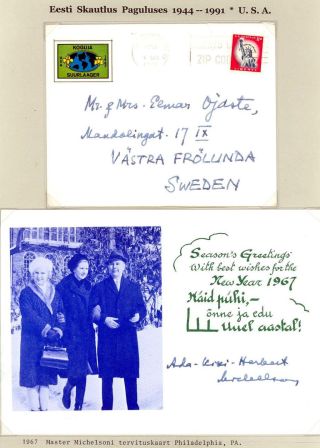 Eesti Skautlus Paguluses 1944 -- 1991 * U.S.A.
KOGUJA
SUURLAAGER
ZIP CO
Mr. & Mrs. Elmar Ojaste,
Mandolingat. 17 IX
VÄSTRA FRÖLUNDA
SWEDEN
Season's Greetings
With best wishes for the
New Year 1967
Häid pühi,-
õnne ja edu
Uuel aastal!
Ada - Kiki - Herbert
Michelson
1967 Master Michelsoni tervituskaart Philadelphia, PA.